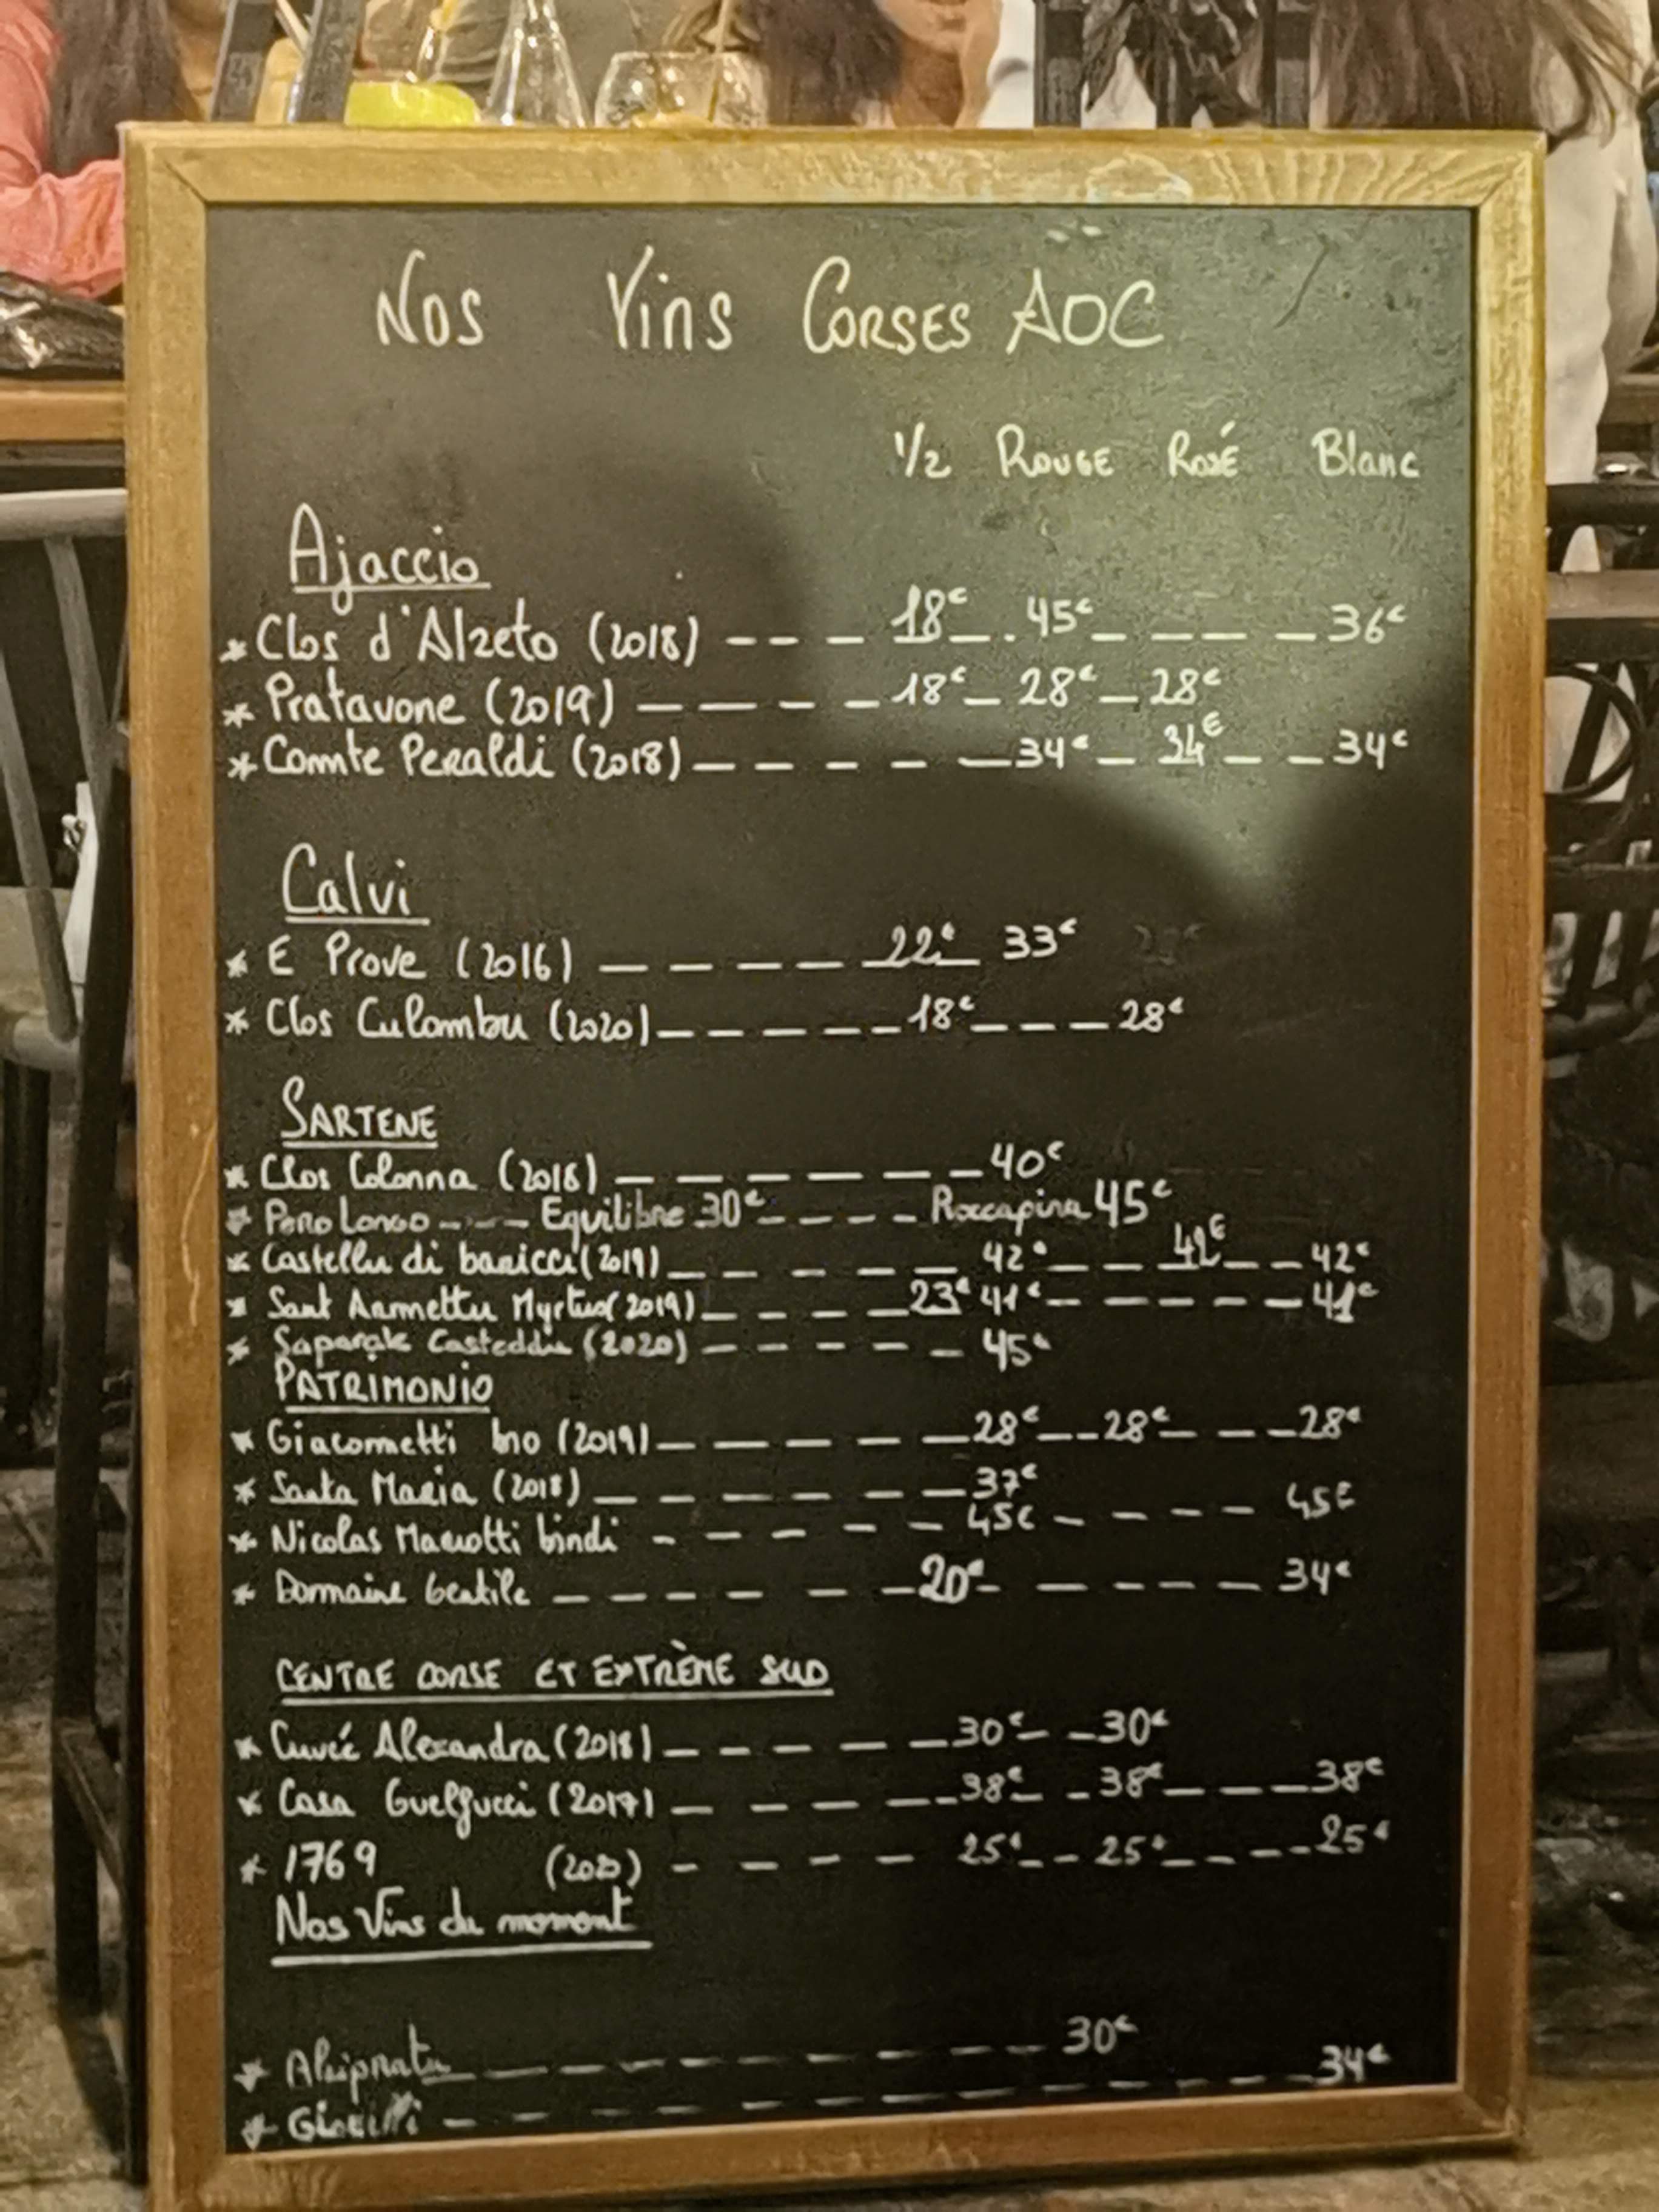 Nos Vins CORSES AOC
1/2 ROUGE ROSÉ Blanc
Ajaccio
* Clos d'Alzeto (2018) --- 18€ -- 45€ - --- 36€
* Pratavone (2019) ----- 18€ - 28€ - 28€
* Comte Peraldi (2018) ----- 34€ - 34€ -- 34€
Calvi
* E Prove (2016) ----- 22€ 33€
* Clos Culombu (2020) ----- 18€ --- 28€
SARTENE
* Clos Colonna (2016) ------ 40€
* Pero Longo --- Equilibre 30€ ---- Roccapina 45€
* Castellu di baricci (2019) ----- 42€ --- 42€ -- 42€
* Sant Armettu Myrtus (2019) ---- 23€ 41€ ----- 41€
* Saparale Casteddu (2020) ----- 45€
PATRIMONIO
* Giacometti bio (2019) ----- 28€ -- 28€ --- 28€
* Santa Maria (2018) ------ 37€
* Nicolas Mariotti bindi ----- 45€ ---- 45€
* Domaine Gentile ------ 20€ ----- 34€
CENTRE CORSE ET EXTRÈME SUD
* Cuvée Alexandra (2018) ----- 30€ -- 30€
* Casa Guelfucci (2017) ----- 38€ -- 38€ --- 38€
* 1769 (2020) ---- 25€ -- 25€ ---- 25€
Nos Vins du moment
* Alzipratu -------- 30€
* ---------- 34€